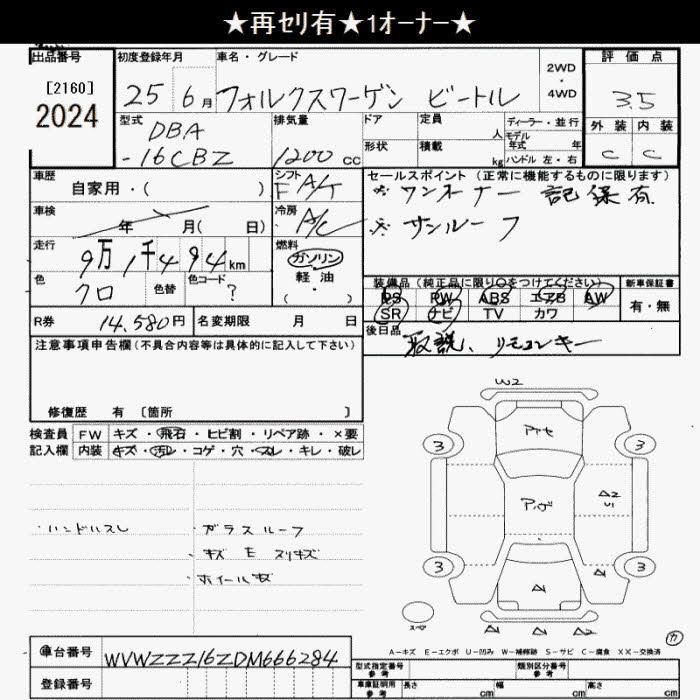 ★再セリ有★1オーナー★
出品番号
[2160]
2024
初度登録年月
25 6月
車名・グレード
フォルクスワーゲン ビートル
2WD
・
4WD
評価点
3.5
外装 内装
C C
型式
DBA
-16CBZ
排気量
1200 cc
ドア
定員 人
ディーラー・並行
モデル
年式 年
形状
積載 kg
ハンドル 左・右
車歴
自家用・( )
シフト
F A/T
セールスポイント(正常に機能するものに限ります)
※ワンオーナー 記保有
※サンルーフ
車検
年 月( 日)
冷房
A/C
走行
9万1千494km
燃料
ガソリン
軽・油
( )
色
クロ
色替
色コード
?
装備品(純正品に限り○をつけてください)
PS PW ABS エアB AW
SR ナビ TV カワ
新車保証書
有・無
R券 14,580円 名変期限 月 日
後日品
取説、リモコンキー
注意事項申告欄(不具合内容等は具体的に記入して下さい)
修復歴 有〔箇所 〕
検査員
記入欄
FW キズ・飛石・ヒビ割・リペア跡・×要
内装 キズ・汚レ・コゲ・穴・スレ・キレ・破レ
・ハンドルスレ
・ガラスルーフ
・キズ E スリキズ
・ホイールキズ
W2
3 3
A2
U1
3 3
A A
スペア
A A A
カ
A-キズ E-エクボ U-凹み W-補修跡 S-サビ C-腐食 XX-交換済
車台番号
WVWZZZ16ZDM666284
登録番号
型式指定番号
参考
類別区分番号
参考
車庫証明用
参考
長さ cm 幅 cm 高さ cm